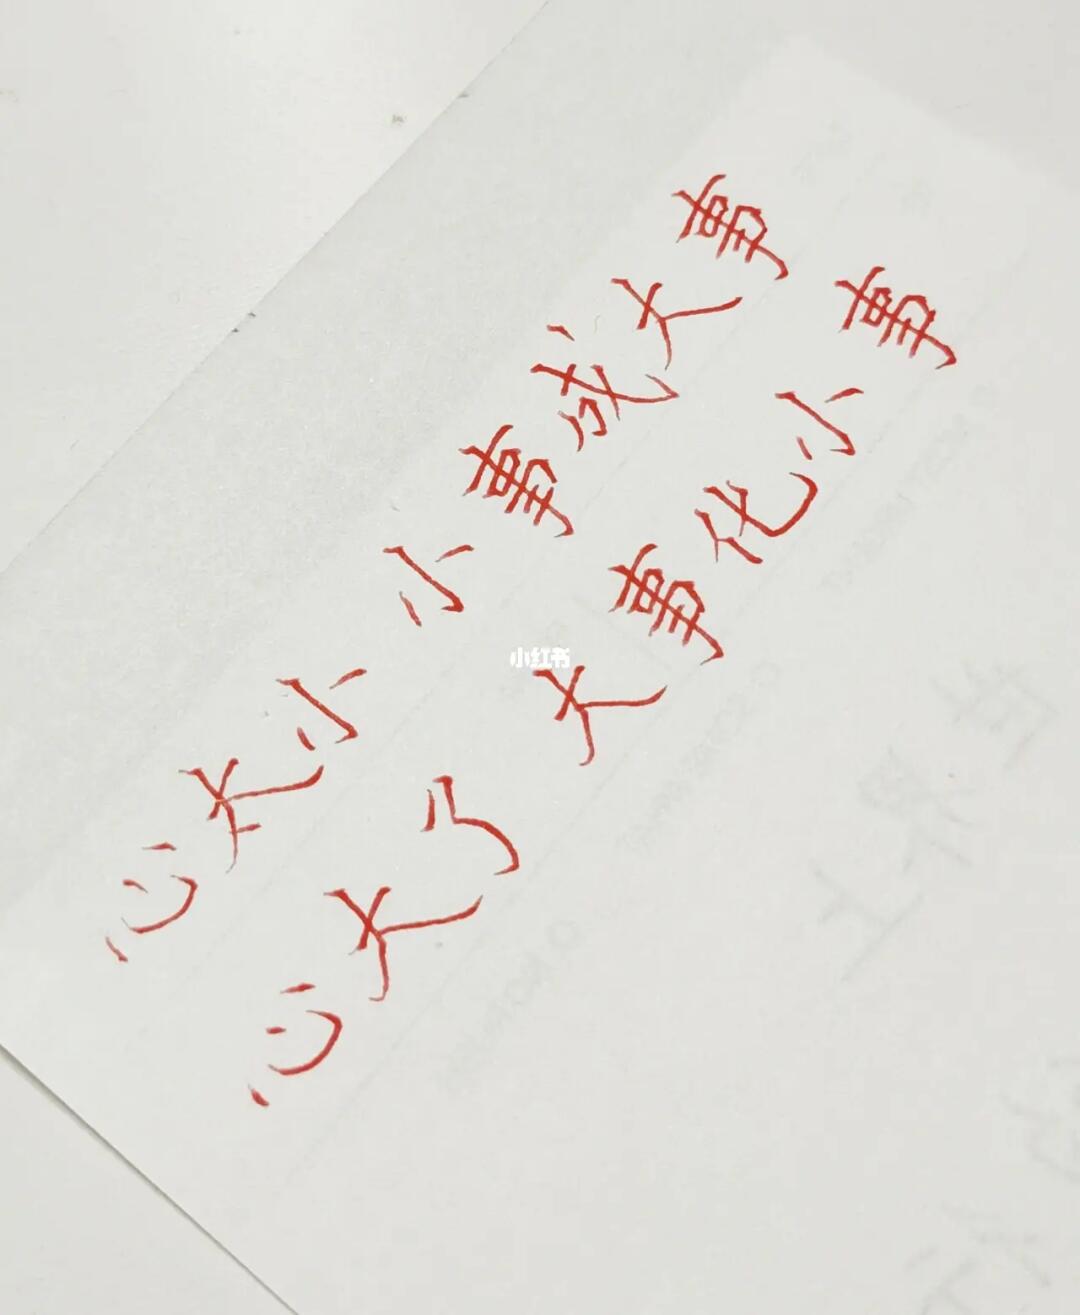 心太小 小事成大事
心大了 大事化小事
小红书